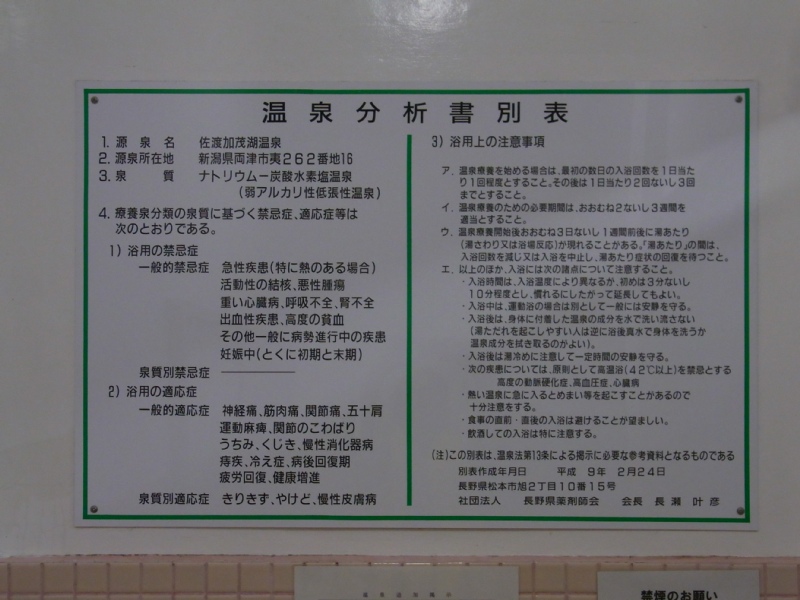 温泉分析書別表
1. 源泉名 佐渡加茂湖温泉
2. 源泉所在地 新潟県両津市夷262番地16
3. 泉質 ナトリウムー炭酸水素塩温泉
(弱アルカリ性低張性温泉)
4. 療養泉分類の泉質に基づく禁忌症、適応症等は
次のとおりである。
1) 浴用の禁忌症
一般的禁忌症 急性疾患(特に熱のある場合)
活動性の結核、悪性腫瘍
重い心臓病、呼吸不全、腎不全
出血性疾患、高度の貧血
その他一般に病勢進行中の疾患
妊娠中(とくに初期と末期)
泉質別禁忌症 ————
2) 浴用の適応症
一般的適応症 神経痛、筋肉痛、関節痛、五十肩
運動麻痺、関節のこわばり
うちみ、くじき、慢性消化器病
痔疾、冷え症、病後回復期
疲労回復、健康増進
泉質別適応症 きりきず、やけど、慢性皮膚病
3) 浴用上の注意事項
ア. 温泉療養を始める場合は、最初の数日の入浴回数を1日当た
り1回程度とすること。その後は1日当たり2回ないし3回
までとすること。
イ. 温泉療養のための必要期間は、おおむね2ないし3週間を
適当とすること。
ウ. 温泉療養開始後おおむね3日ないし1週間前後に湯あたり
(湯さわり又は浴場反応)が現れることがある。「湯あたり」の間は、
入浴回数を減じ又は入浴を中止し、湯あたり症状の回復を待つこと。
エ. 以上のほか、入浴には次の諸点について注意すること。
・入浴時間は、入浴温度により異なるが、初めは3分ないし
10分程度とし、慣れるにしたがって延長してもよい。
・入浴中は、運動浴の場合は別として一般には安静を守る。
・入浴後は、身体に付着した温泉の成分を水で洗い流さない
(湯ただれを起こしやすい人は逆に浴後真水で身体を洗うか
温泉成分を拭き取るのがよい)。
・入浴後は湯冷めに注意して一定時間の安静を守る。
・次の疾患については、原則として高温浴(42℃以上)を禁忌とする
高度の動脈硬化症、高血圧症、心臓病
・熱い温泉に急に入るとめまい等を起こすことがあるので
十分注意をする。
・食事の直前・直後の入浴は避けることが望ましい。
・飲酒しての入浴は特に注意する。
(注)この別表は、温泉法第13条による掲示に必要な参考資料となるものである
別表作成年月日 平成 9年 2月24日
長野県松本市旭2丁目10番15号
社団法人 長野県薬剤師会 会長 長瀬叶彦
禁煙のお願い